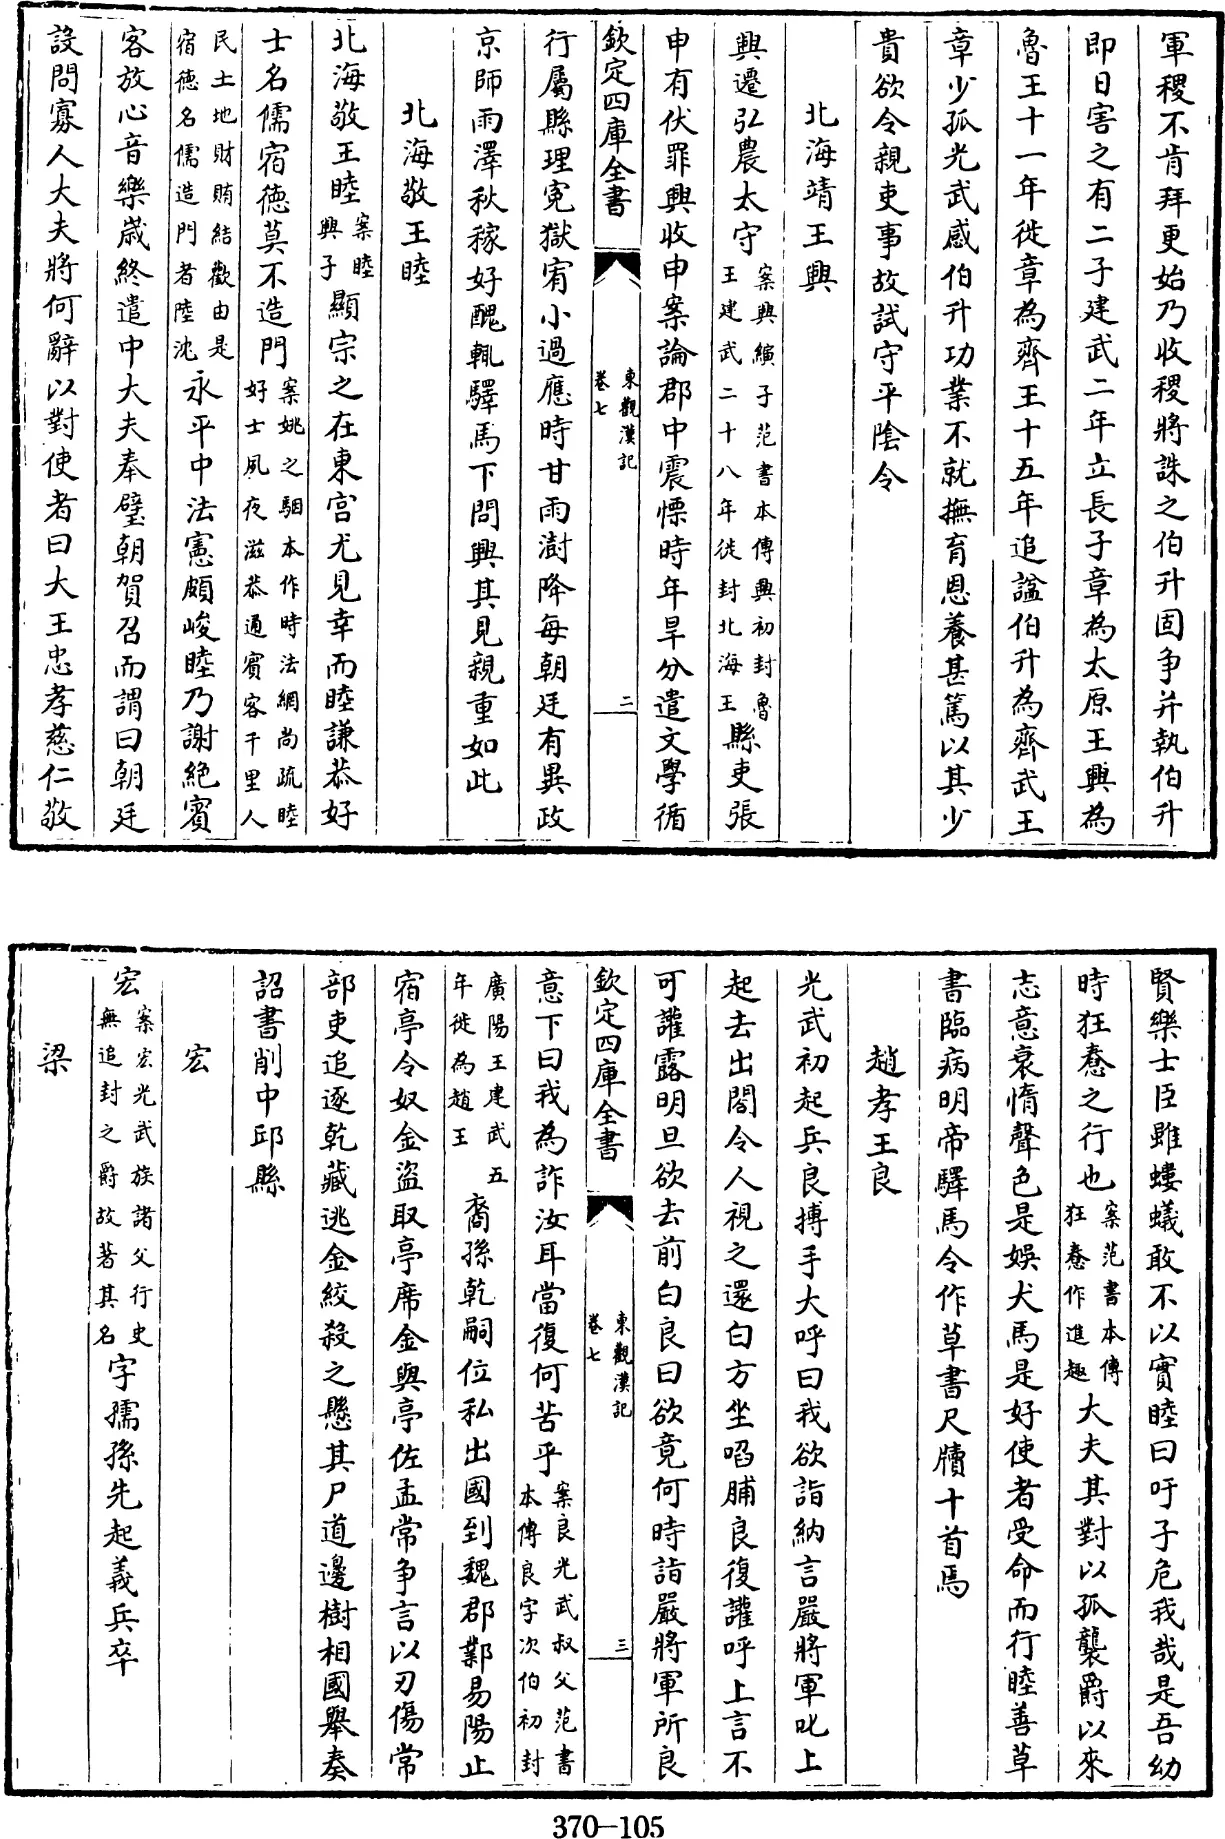 軍稷不肯拜更始乃收稷將誅之伯升固争并執伯升
即日害之有二子建武二年立長子章為太原王興為
魯王十一年徙章為齊王十五年追謚伯升為齊武王
章少孤光武感伯升功業不就撫育恩養甚篤以其少
貴欲令親吏事故試守平陰令
北海靖王興
興遷弘農太守案興縯子范書本傳興初封魯王建武二十八年徙封北海王縣吏張
申有伏罪興收申案論郡中震慄時年旱分遣文學循
欽定四庫全書
東觀漢記
卷七
二
行屬縣理寃獄宥小過應時甘雨澍降每朝廷有異政
京師雨澤秋稼好醜輒驛馬下問興其見親重如此
北海敬王睦
北海敬王睦案睦興子顯宗之在東宫尤見幸而睦謙恭好
士名儒宿徳莫不造門案姚之駰本作時法網尚疏睦好士夙夜滋恭通賓客千里人
民土地財賄結歡由是宿徳名儒造門者陸沈永平中法憲頗峻睦乃謝絶賓
客放心音樂歲終遣中大夫奉璧朝賀召而謂曰朝廷
設問寡人大夫將何辭以對使者曰大王忠孝慈仁敬
賢樂士臣雖螻蟻敢不以實睦曰吁子危我哉是吾幼
時狂惷之行也案范書本傳狂惷作進趣大夫其對以孤襲爵以來
志意衰惰聲色是娯犬馬是好使者受命而行睦善草
書臨病明帝驛馬令作草書尺牘十首焉
趙孝王良
光武初起兵良搏手大呼曰我欲詣納言嚴將軍叱上
起去出閤令人視之還白方坐啗脯良復讙呼上言不
可讙露明旦欲去前白良曰欲竟何時詣嚴將軍所良
欽定四庫全書
東觀漢記
卷七
三
意下曰我為詐汝耳當復何苦乎案良光武叔父范書本傳良字次伯初封
廣陽王建武五年徙為趙王裔孫乾嗣位私出國到魏郡鄴易陽止
宿亭令奴金盜取亭席金與亭佐孟常争言以刃傷常
部吏追逐乾藏逃金絞殺之懸其尸道邊樹相國舉奏
詔書削中邱縣
宏
宏案宏光武族諸父行史無追封之爵故著其名字孺孫先起義兵卒
梁
370-105